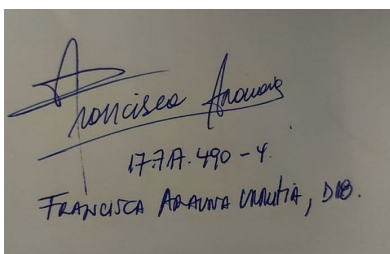 Francisca Araouna
17.717.490-4.
FRANCISCA ARAUNA URRUTIA, DIB.